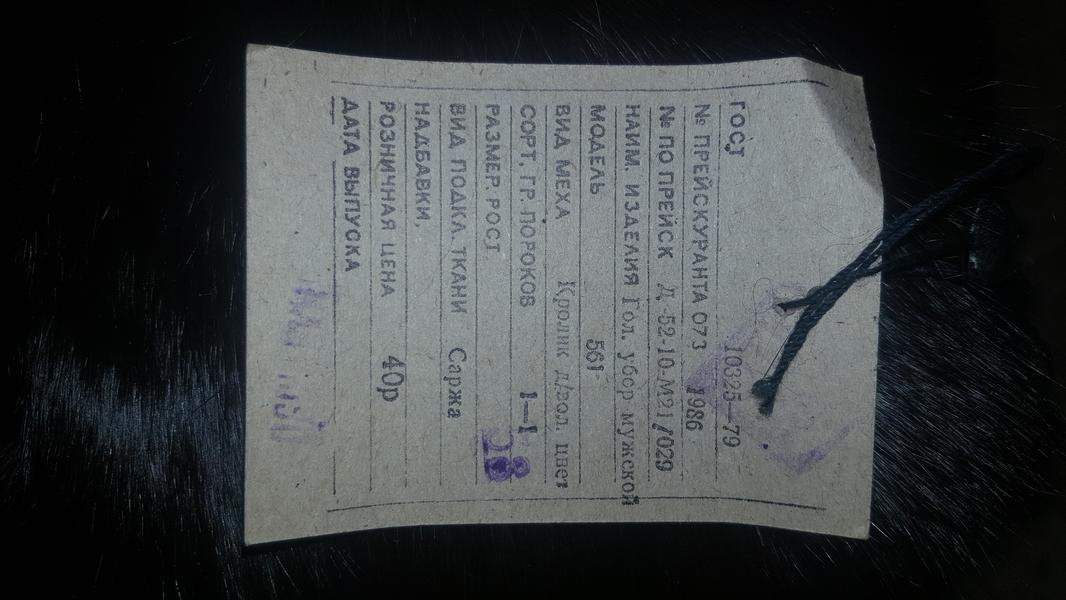 ГОСТ 10325—79
№ ПРЕЙСКУРАНТА 073 1986
№ ПО ПРЕЙСК Д-52-10-М21/029
НАИМ. ИЗДЕЛИЯ Гол. убор мужской
МОДЕЛЬ 561
ВИД МЕХА Кролик д/вол. цвет
СОРТ, ГР. ПОРОКОВ 1—1
РАЗМЕР. РОСТ 58
ВИД ПОДКЛ. ТКАНИ Саржа
НАДБАВКИ,
РОЗНИЧНАЯ ЦЕНА 40р
ДАТА ВЫПУСКА